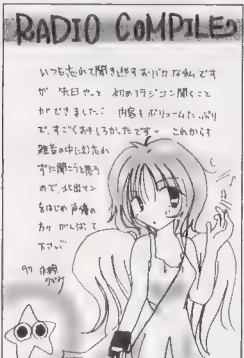 RADIO COMPILE
いつも忘れて聞き逃すおバカな私です
が 先日やっと 初めてラジコン聞くこと
ができました 内容もボリュームたっぷり
で、すごくおもしろかったです これからも
雑音の中にも忘れ
ずに聞こうと思う
ので、北出マン
をはじめ 声優の
方々 がんばって
下さい
97